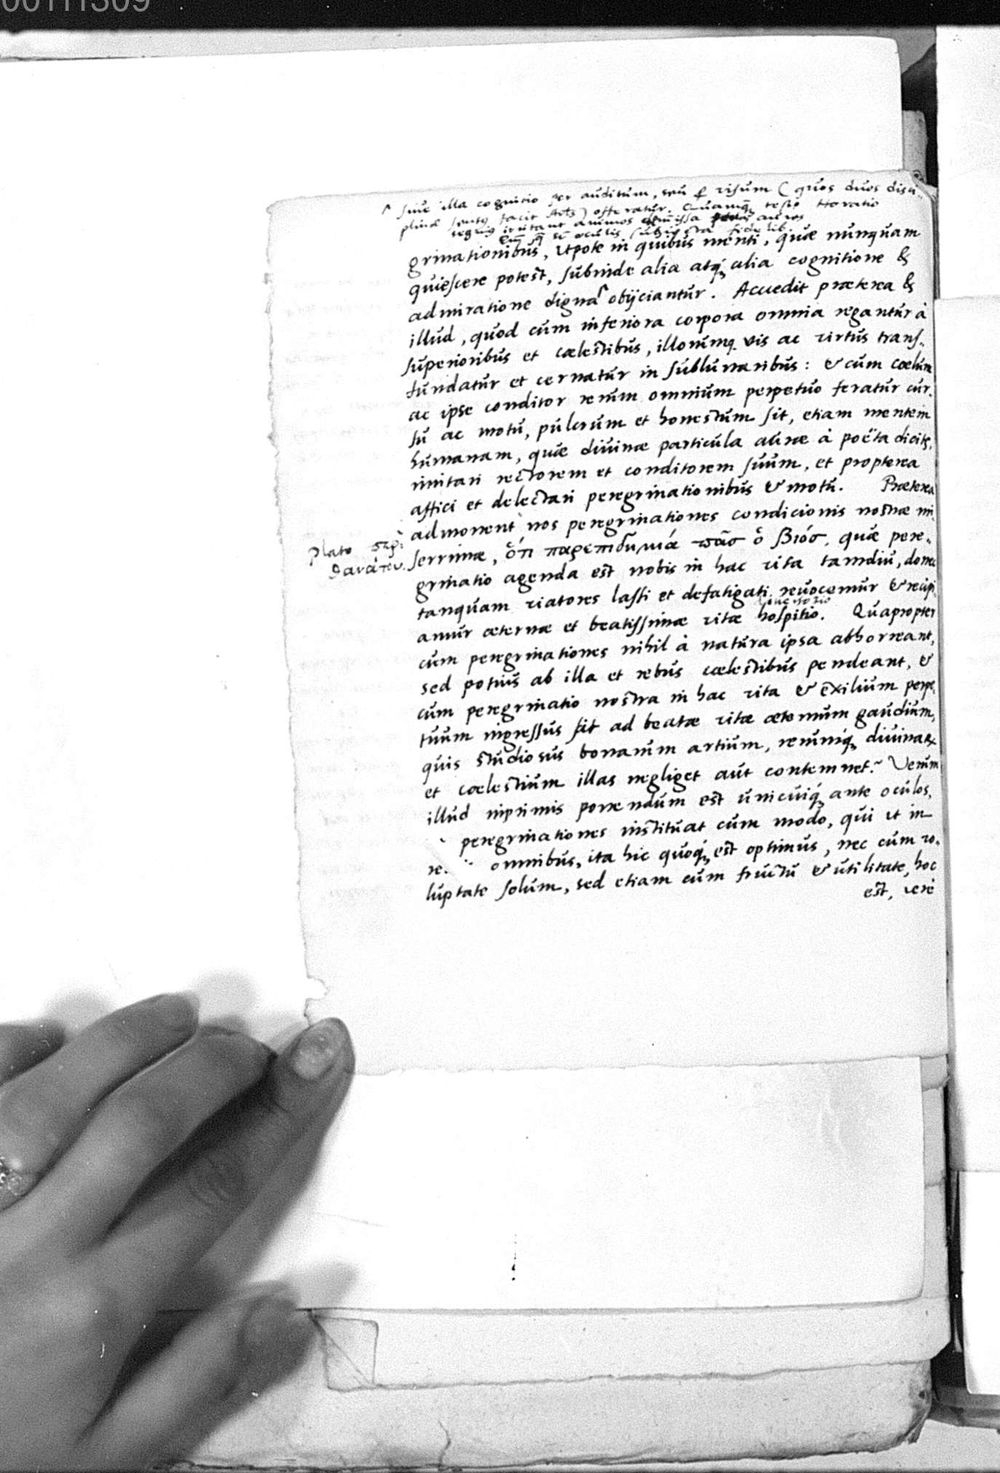 00111309
siue illa cognitio per auditum, seu ꝑ visum (quos duos disci-
plinæ facit Arist.) offeratur. teste Horatio
segnius irritant animos demissa aures
quæ st oculis subiecta fidelib.
grinationibus, vtpote in quibus menti, quæ nunquam
quiescere potest, subinde alia atq; alia cognitione &
admiratione digna obijciantur. Accedit præterea &
illud, quod cùm inferiora corpora omnia regantur à
superioribus et cælestibus, illorumq; vis ac virtus trans-
fundatur et cernatur in sublunaribus: & cùm cœlum
ac ipse conditor rerum omnium perpetuò feratur cur-
su ac motu, pulcrum et honestum sit, etiam mentem
humanam, quæ diuinæ particula auræ à poëta dicitur,
imitari rectorem et conditorem suum, et propterea
affici et delectari peregrinationibus & motu. Præterea
admonent nos peregrinationes condicionis nostræ mi-
Plato περὶ
θανάτου.
serrimæ, ὅτι παρεπιδημιά πᾶσ ὁ βιός, quæ pere-
grinatio agenda est nobis in hac vita tamdiu, donec
tanquam viatores lassi et defatigati reuocemur & recipi-
amur æternæ et beatissimæ vitæ hospitio. Quapropter
cùm peregrinationes nihil à natura ipsa abhorreant,
sed potius ab illa et rebus cælestibus pendeant, &
cùm peregrinatio nostra in hac vita & exilium perpe-
tuum ingressus sit ad beatæ vitæ æternum gaudium,
quis studiosus bonarum artium, rerumq; diuinarum
et cœlestium illas negliget aut contemnet? Verùm
illud inprimis ponendum est vnicuiq; ante oculos,
peregrinationes instituat cum modo, qui vt in
re omnibus, ita hîc quoq; est optimus, nec cum vo-
luptate solùm, sed etiam cum fructu & vtilitate, hoc
est, verè